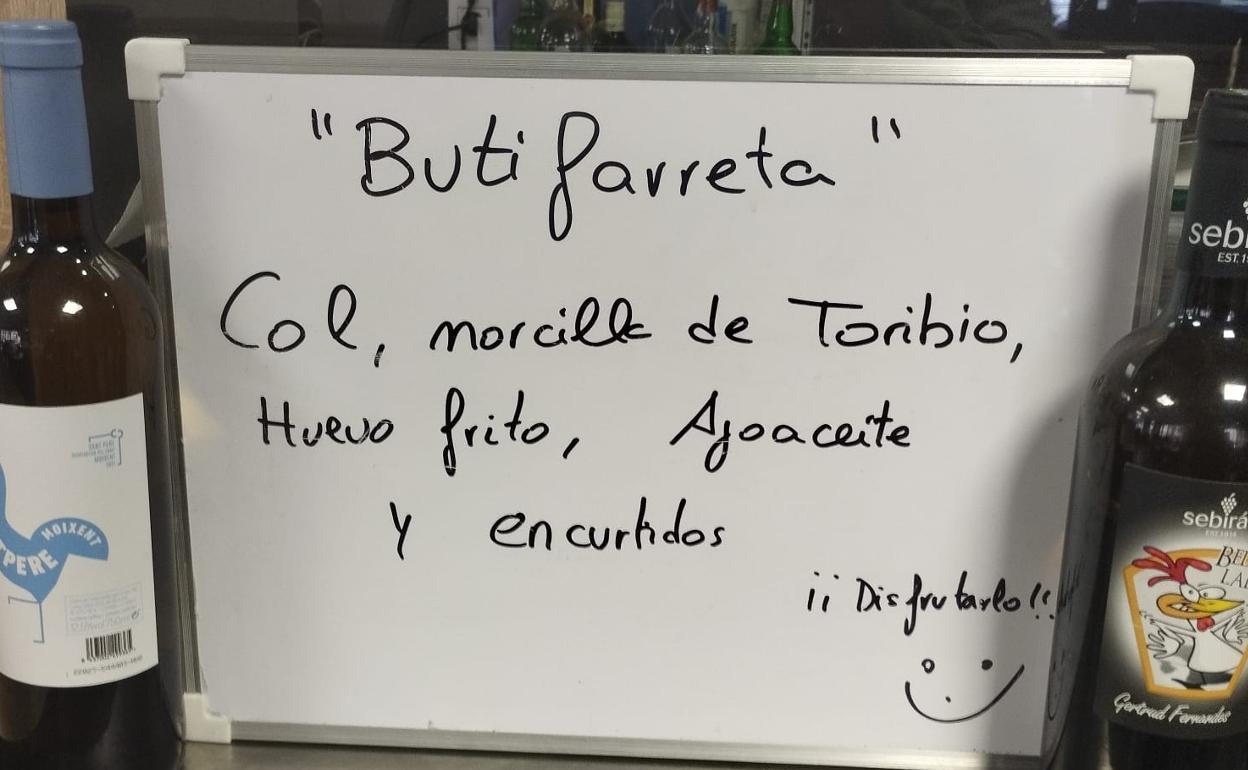 "Butifarreta"
Col, morcilla de Toribio,
Huevo frito, Ajoaceite
y encurtidos
¡¡ Disfrutarlo!!
MOIXENT
PERE
sebirá
Gertrud Fernandes